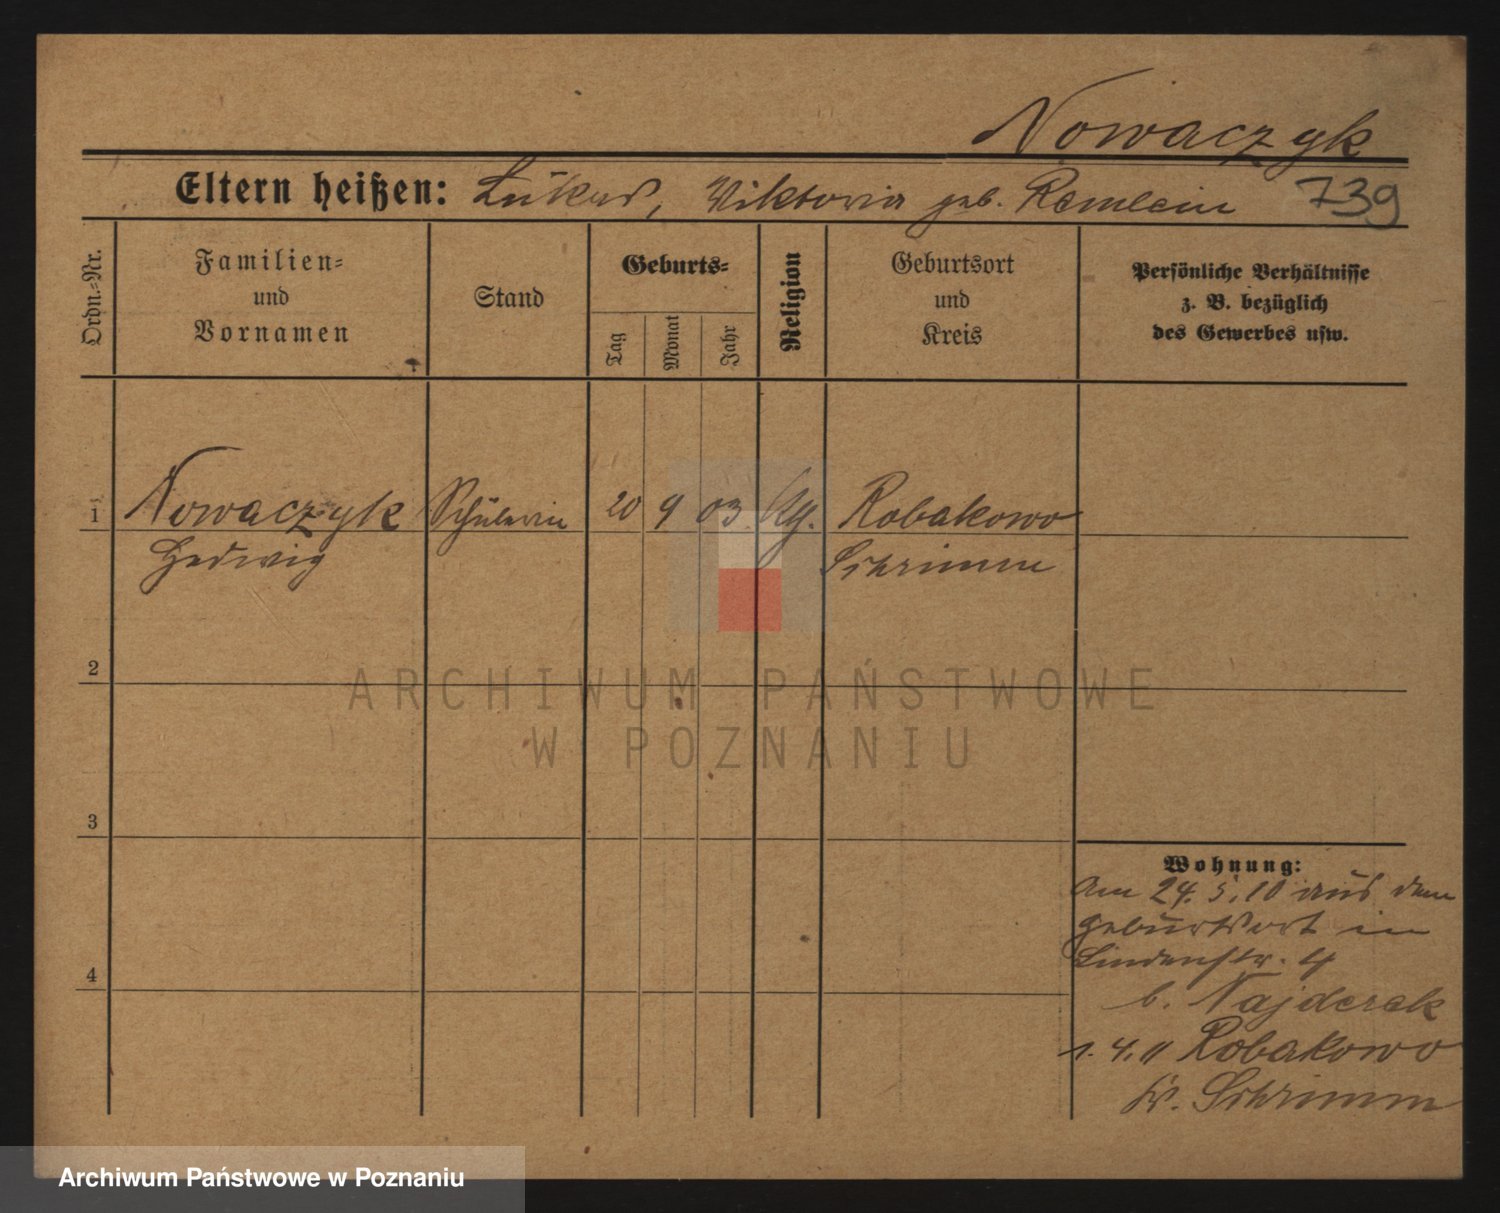 Nowaczyk
Eltern heißen: Lukas, Viktoria geb. Remlein 739
Ordn.-Nr.
Familien-
und
Vornamen
Stand
Geburts-
Tag
Monat
Jahr
Religion
Geburtsort
und
Kreis
Persönliche Verhältnisse
z. B. bezüglich
des Gewerbes usw.
1 Nowaczyk Schülerin 20 9 03. Robakowo
Hedwig Schrimm
2
3
4
Wohnung:
Am 24. 5. 10 aus dem
Geburtsort in
Lindenstr. 4
b. Najderek
1. 4. 11 Robakowo
Kr. Schrimm
ARCHIWUM PAŃSTWOWE
W POZNANIU
Archiwum Państwowe w Poznaniu